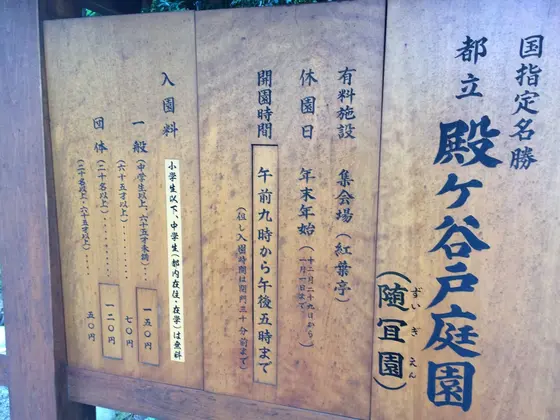 国指定名勝
都立 殿ヶ谷戸庭園
(随冝園)
ずいぎえん
有料施設 集会場(紅葉亭)
休園日 年末年始(十二月二十九日から
一月一日まで)
開園時間 午前九時から午後五時まで
(但し入園時間は閉門三十分前まで)
入園料 小学生以下、中学生(都内在住・在学)は無料
一般
(中学生以上、六十五才未満)・・・・ 一五〇円
(六十五才以上)・・・・・・・ 七〇円
団体
(二十名以上)・・・・・・・・ 一二〇円
(二十名以上、六十五才以上)・・・ 五〇円